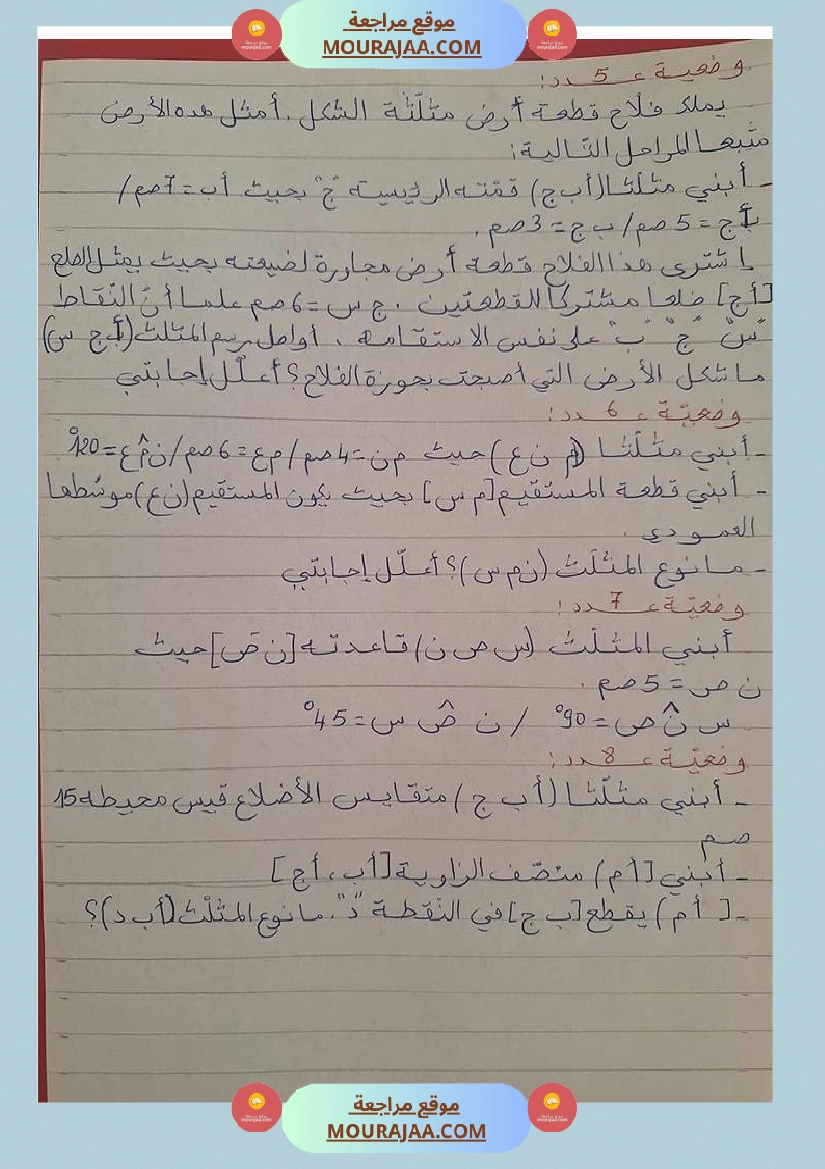 موقع مراجعة
MOURAJAA.COM
وضعية عـ5ـدد:
يملك فلاح قطعة أرض مثلّثة الشكل. أمثل هذه الأرض
متّبعا المراحل التّالية:
- أبني مثلّثا (أ ب ج) قمّته الرئيسية "ج" بحيث أب = 7صم/
أج = 5 صم/ ب ج = 3 صم.
اشترى هذا الفلاح قطعة أرض مجاورة لضيعته بحيث يمثل الضلع
[أج] ضلعا مشتركا للقطعتين. ج س = 6 صم علما أنّ النّقاط
"س" "ج" "ب" على نفس الاستقامة. أواصل رسم المثلث (أ ج س)
ما شكل الأرض التي أصبحت بحوزة الفلاح؟ أعلّل إجابتي
وضعيّة عـ6ـدد:
- أبني مثلّثا (م ن ع) حيث م ن = 4 صم/ م ع = 6 صم/ ن م̂ ع = 120°
- أبني قطعة المستقيم [م س] بحيث يكون المستقيم (ن ع) موسّطها
العمودي.
- ما نوع المثلّث (ن م س)؟ أعلّل إجابتي
وضعيّة عـ7ـدد:
أبني المثلّث (س ص ن) قاعدته [ن ص] حيث
ن ص = 5 صم.
س ن̂ ص = 90° / ن ص̂ س = 45°
وضعيّة عـ8ـدد:
- أبني مثلّثا (أ ب ج) متقايس الأضلاع قيس محيطه 15
صم
- أبني [أم) منصّف الزاوية [أب، أج]
- [أم) يقطع [ب ج] في النّقطة "د". ما نوع المثلّث (أ ب د)؟
موقع مراجعة
MOURAJAA.COM